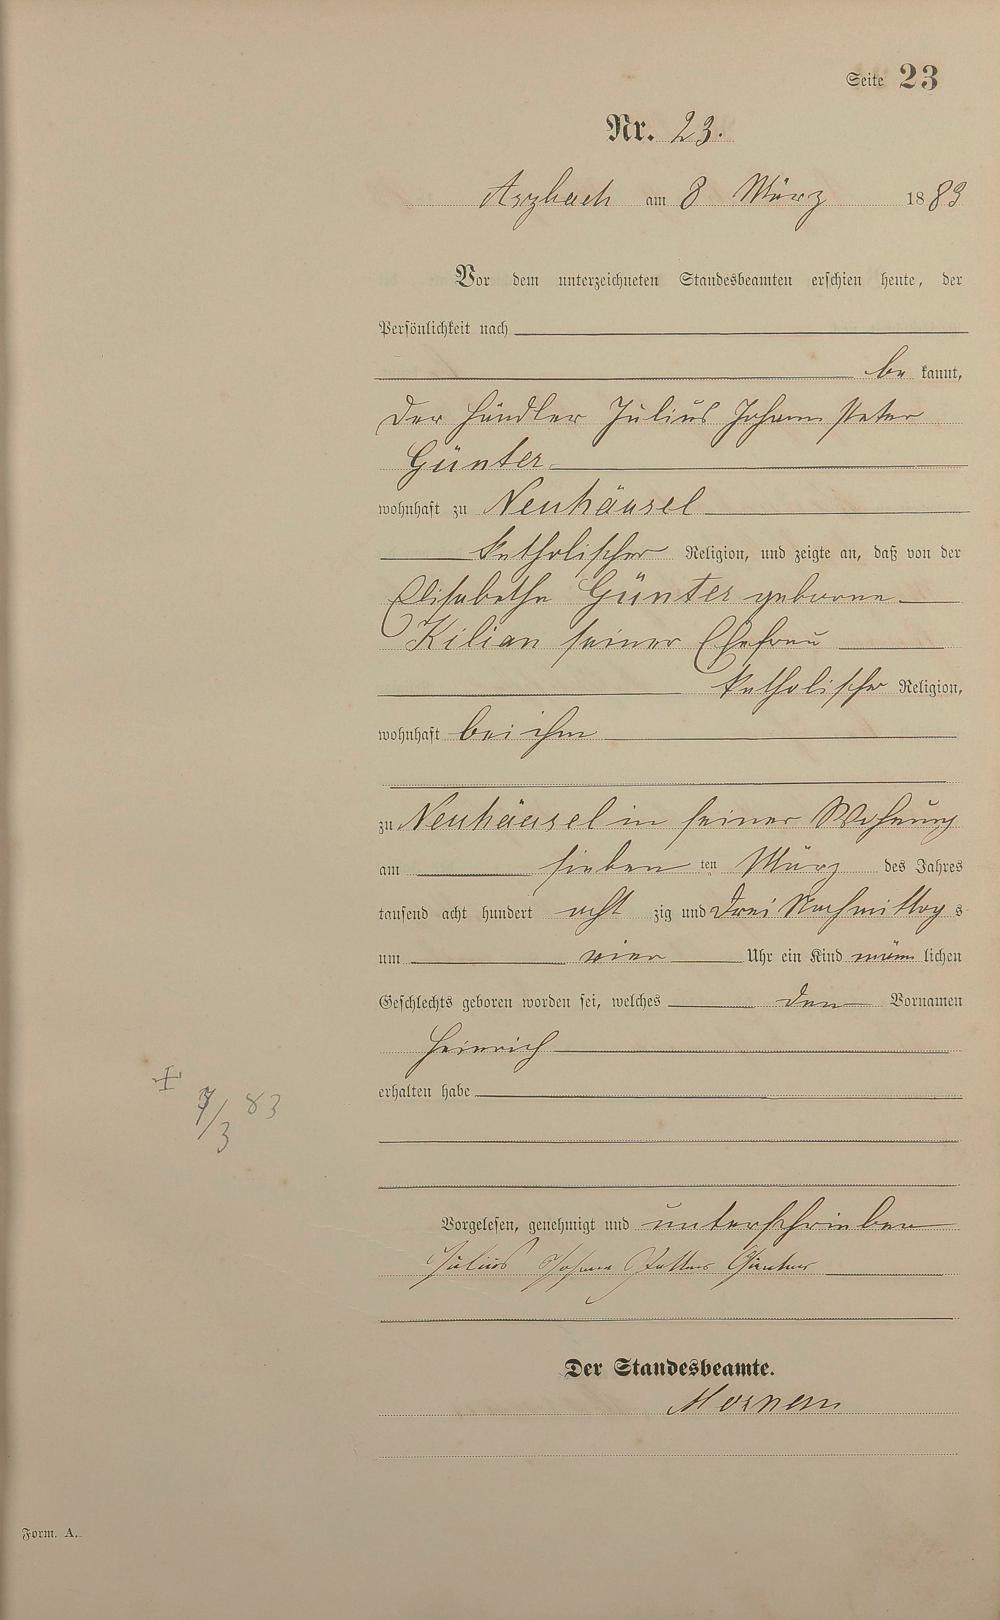 Seite 23
Nr. 23.
Arzbach am 8 März 1883
Vor dem unterzeichneten Standesbeamten erschien heute, der
Persönlichkeit nach
be kannt,
der Händler Julius Johann Peter
Günter
wohnhaft zu Neuhäusel
katholischer Religion, und zeigte an, daß von der
Elisabetha Günter geborene
Kilian seiner Ehefrau
katholischer Religion,
wohnhaft bei ihm
zu Neuhäusel in seiner Wohnung
am sieben ten März des Jahres
tausend acht hundert acht zig und drei Nachmittag s
um vier Uhr ein Kind männ lichen
Geschlechts geboren worden sei, welches den Vornamen
Heinrich
erhalten habe
+ 7/3 83
Vorgelesen, genehmigt und unterschrieben
Julius Johann Günther
Der Standesbeamte.
Form. A.